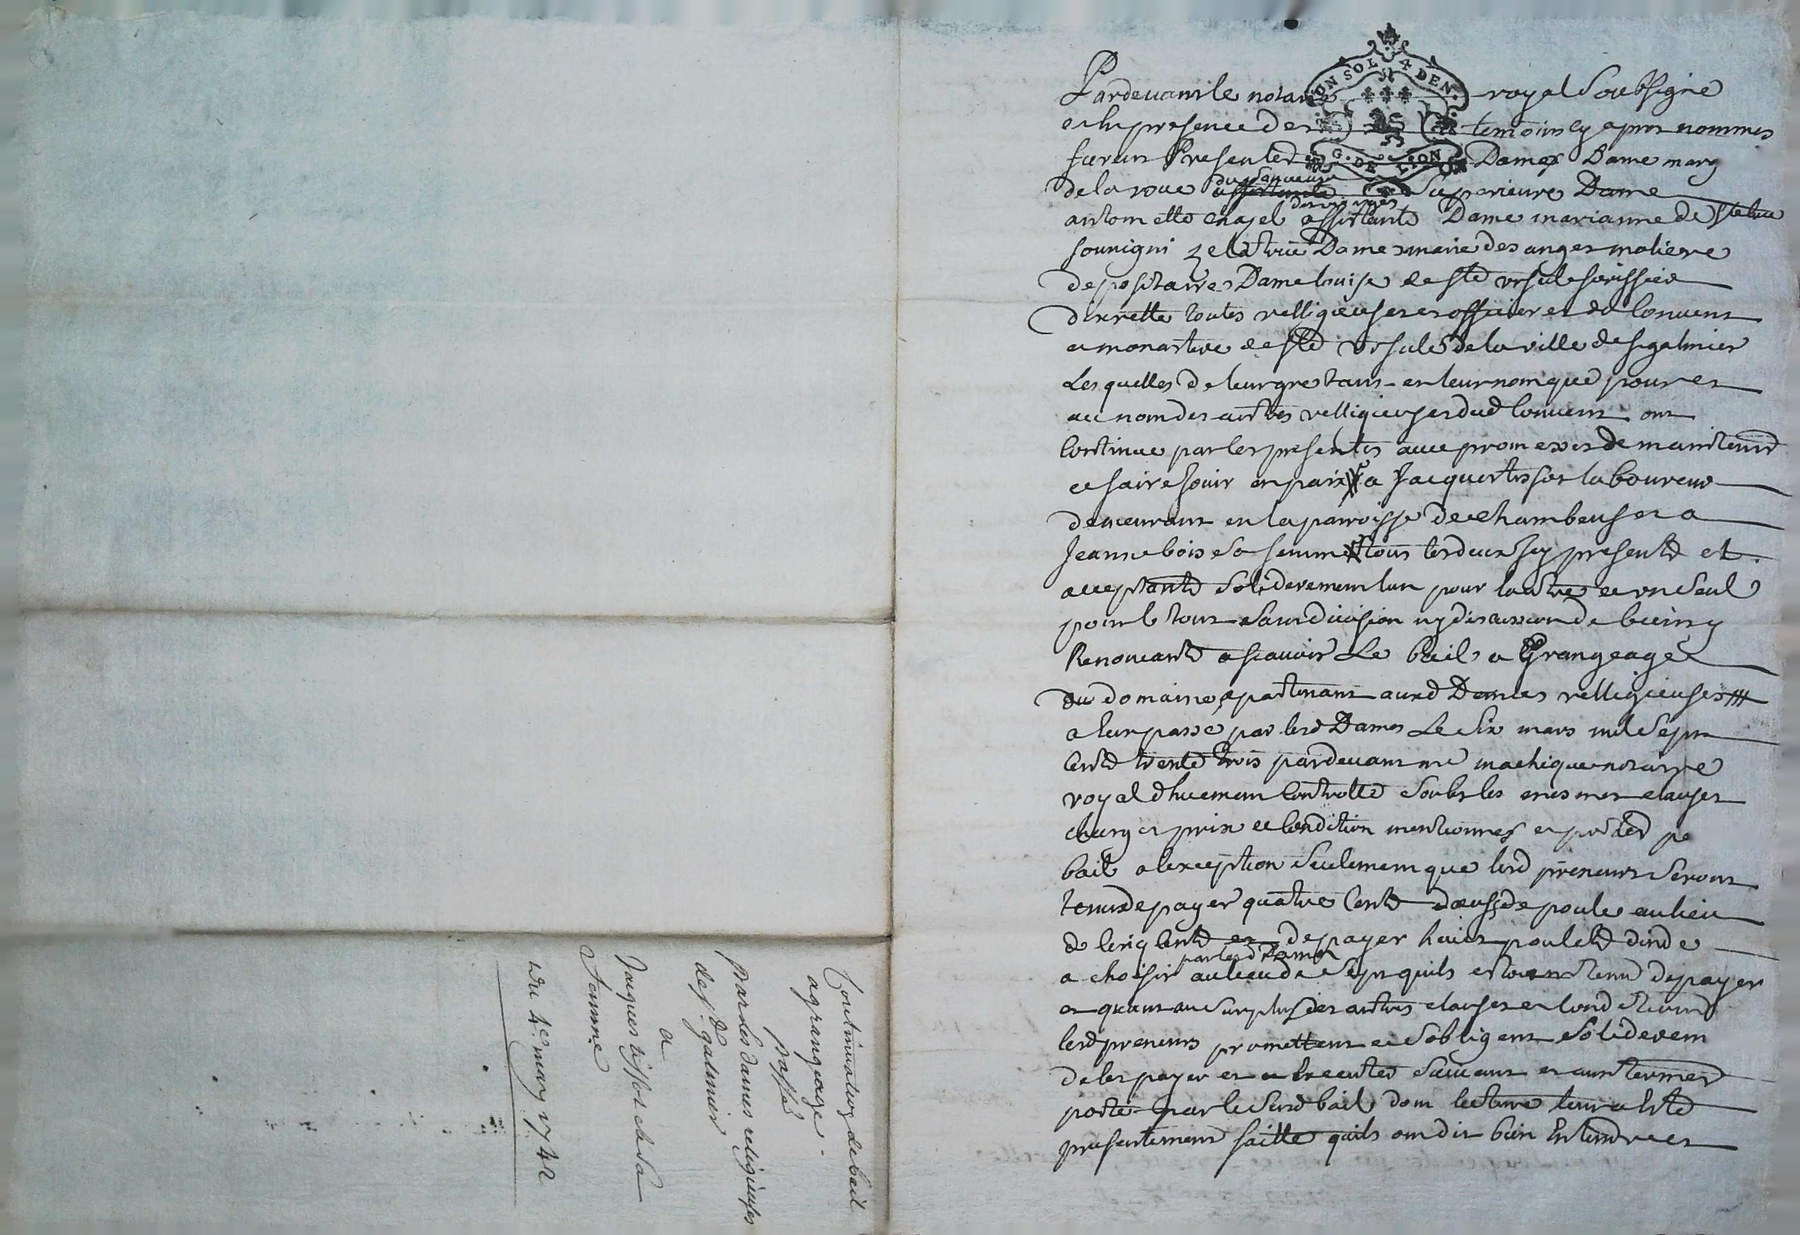 Continuation de bail
a grangeage
passé
par les dames religieuses
de st galmier
a
Jaques tissot et sa
femme
du 4e may 1742
UN SOL 4 DEN.
G. DE LION
Pardevant le notaire royal soubsigne
et en presence des temoins cy apres nommes
furent presentes Dames Dame marg
de la roue du sauveur superieure Dame
antoinette chazel des vierges assistante Dame marianne de
souvigni zelatrice Dame marie des anges moliere
depositaire Dame louise de ste ursule
discrette toutes relligieuses et officieres du Couvent
et monastere de ste Ursule de la ville de st galmier
Lesquelles de leur gre tant en leur nom que pour et
au nom des autres relligieuses dud Couvent ont
Continue par les presentes avec promesses de maintenir
et faire jouir en paix a Jacques tissot laboureur
demeurant en la parroisse de chambeuf et a
Jeanne bois sa femme tous les deux icy presents et
acceptants soliderement lun pour lautre et un seul
pour le tout sans division ny discussion de
Renonceants a scavoir Le bail a Grangeage
du domaine apartenant auxd Dames relligieuses
a leur passé par lesd Dames Le six mars mil sept
cents trente trois pardevant me notaire
royal controlle soubs les mesmes clauses
charges prix et condition mentionnes
bail a lexception seulement que lesd preneurs seront
tenus de payer quatre cents doeufs de poule au lieu
de cinq cents et de payer huict poulets dinde
a choisir par lesd Dames au lieu de sept quils estoient tenu de payer
et quant au surplus des autres clauses et conditions
lesd preneurs promettent et sobligent soliderem
de les payer et executer suivant et aux termes
porté par le susd bail dont lecture leur a este
presentement faitte quils ont dit bien Entendre et